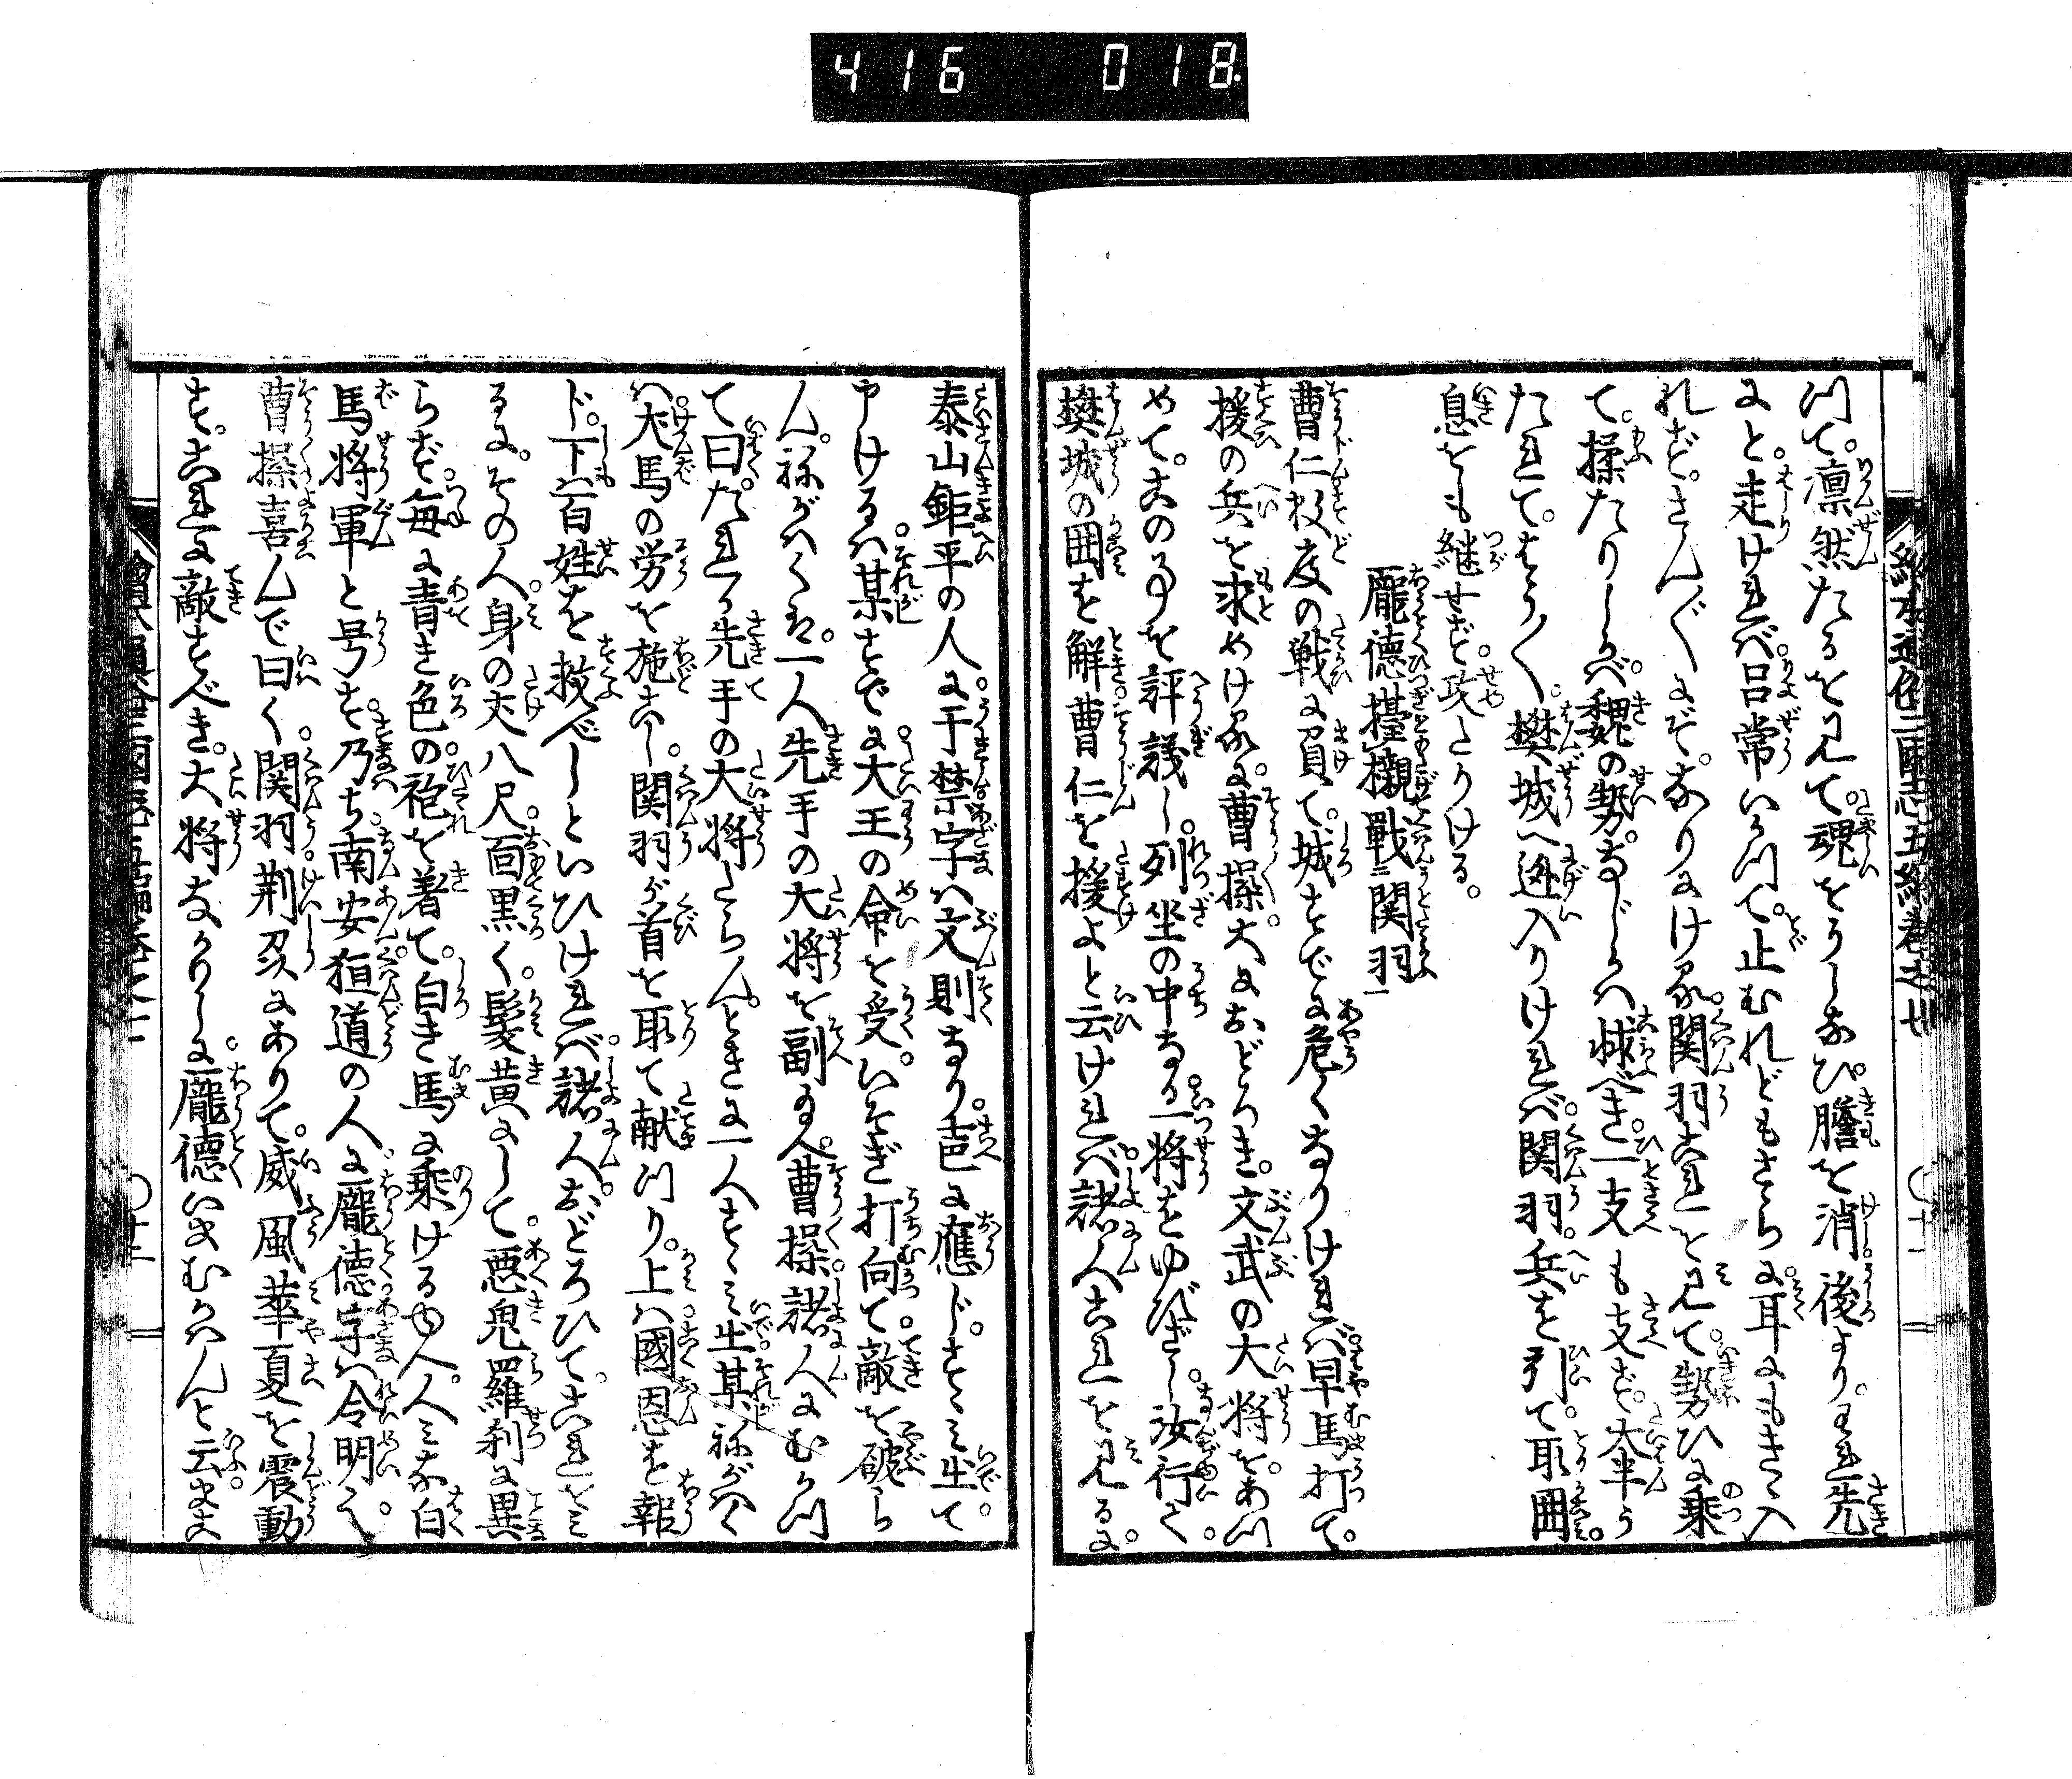 416 018
つて。凛然たるを見て。魂をうしなひ。膽を消。後より。われ先
にと。走ければ。呂常いかつて。止むれどもさらに耳にもきゝ入
れず。さん〴〵にぞ。なりにける。関羽これを見て。勢ひに乗
て。揉たりしかば。魏の勢。なじかは捄べき一支も支ず。大半う
たれて。はう〳〵。樊城へ迯入りければ。関羽。兵を引て取囲。
息をも継せず。攻たりける。
龐徳擡櫬戰関羽
曹仁数度の戦に負て。城すでに危くなりければ。早馬打て。
援の兵を求めける。曹操大におどろき。文武の大将を。あつ
めて。此のことを評議し。列坐の中なる一将をゆびざし。汝行て。
樊城の囲を解。曹仁を援よと云ければ。諸人これを見るに。
泰山鉅平の人に。于禁字は文則なり。声に應じ。すゝみ出て
申けるは。某すでに大王の命を受。いそぎ打向て。敵を破ら
ん。ねがはくは。一人先手の大将を副給へ。曹操諸人にむかつ
て曰。たれか先手の大将たらん。ときに一人すゝみ出。某ねがはく
は。犬馬の労を施し。関羽が首を取て献つり。上は國恩を報
じ。下百姓を救べしといひければ。諸人。おどろひて。これをみ
るに。その人。身の丈八尺。面黒く。髪黄にして。悪鬼羅刹に異
らず。毎に青き色の。袍を着て。白き馬に乗けるゆへ。人みな白
馬将軍と号す。乃ち南安狟道の人に。龐徳字は令明也。
曹操喜んで曰く。関羽。荆刕にありて。威風華夏を震動
す。これに敵すべき。大将なかりしに。龐徳いまむかはんと云。まこ